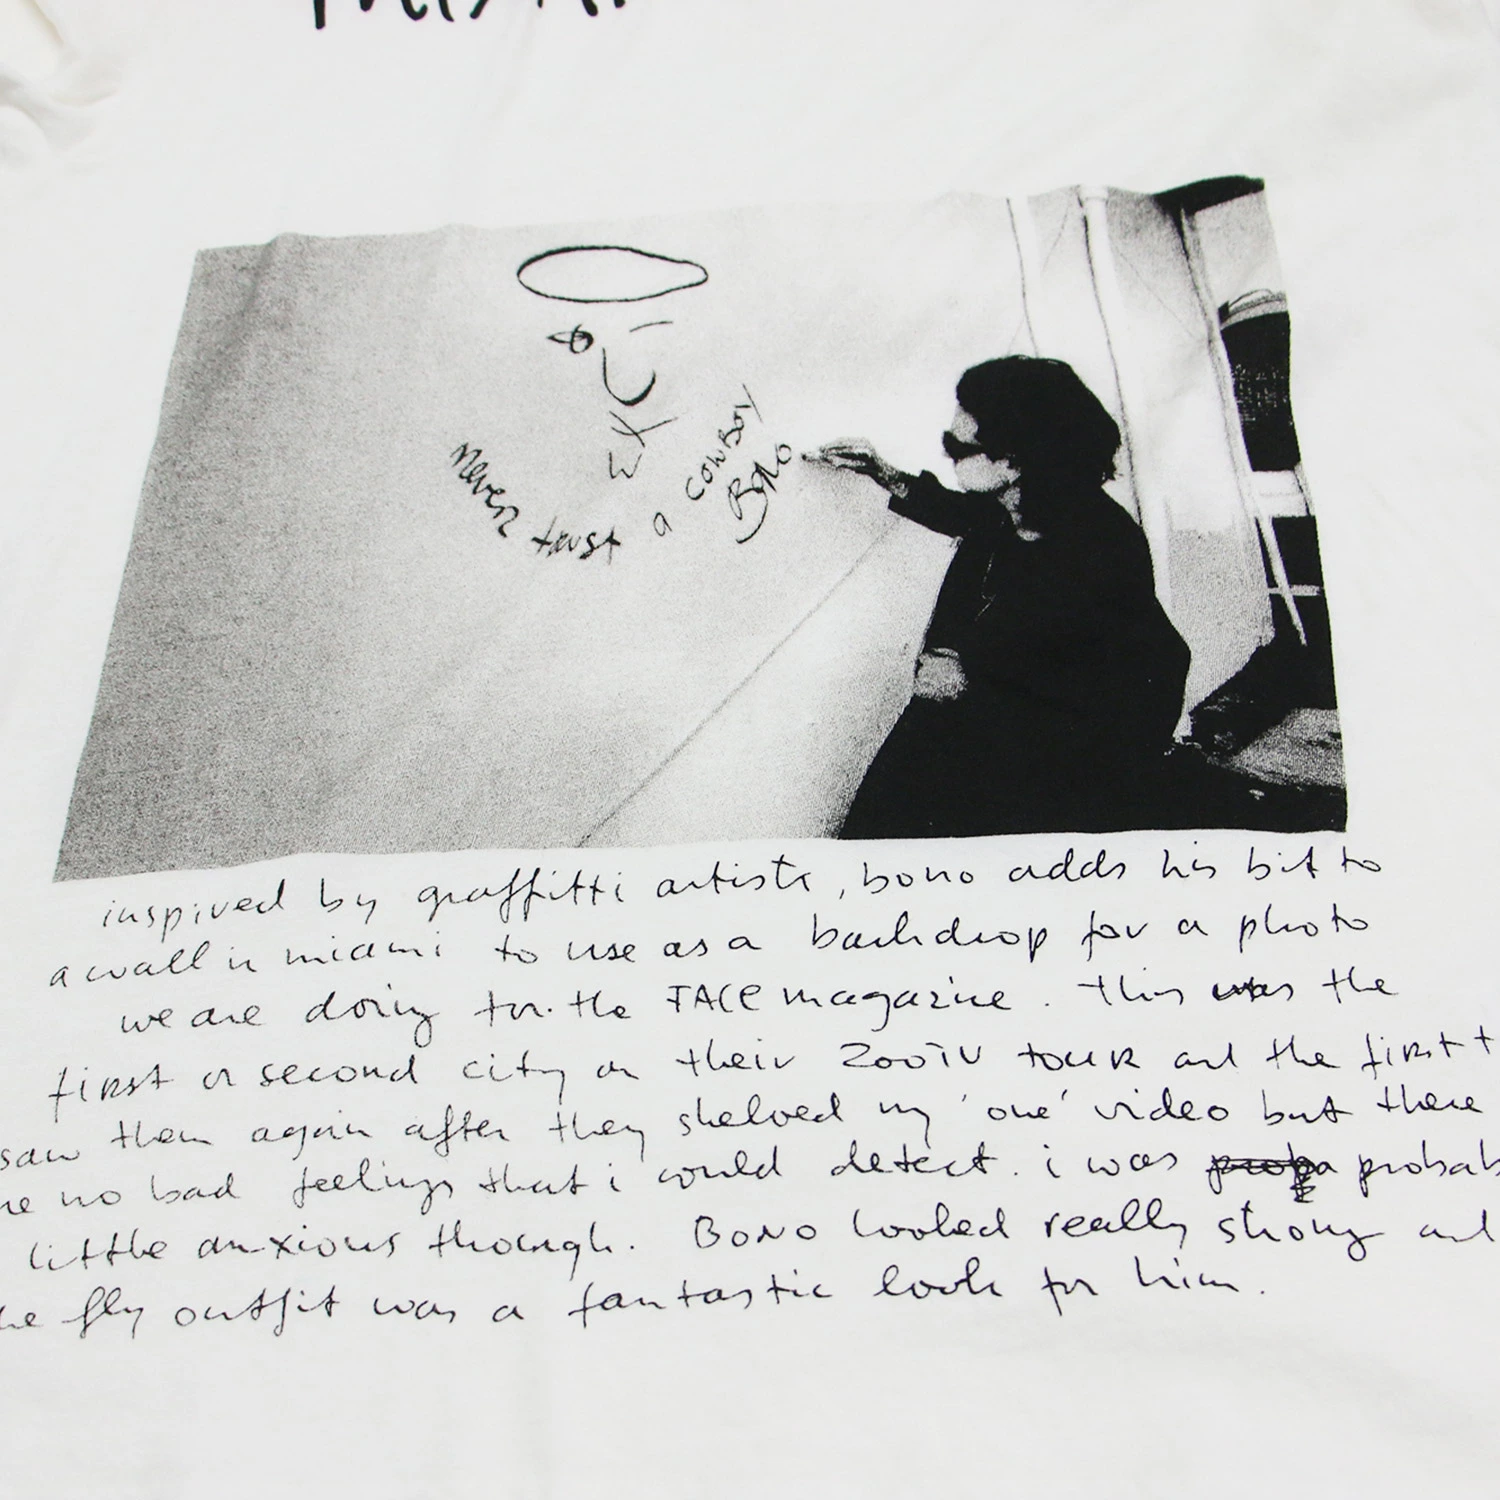 never trust a cowboy
Bono
inspired by graffitti artists, bono adds his bit to
a wall in miami to use as a backdrop for a photo
we are doing for the FACE magazine. this was the
first or second city on their ZOOTV tour and the first t
saw them again after they shelved my 'one' video but there
no bad feelings that i could detect. i was probab
little anxious though. BONO looked really strong and
he fly outfit was a fantastic look for him.